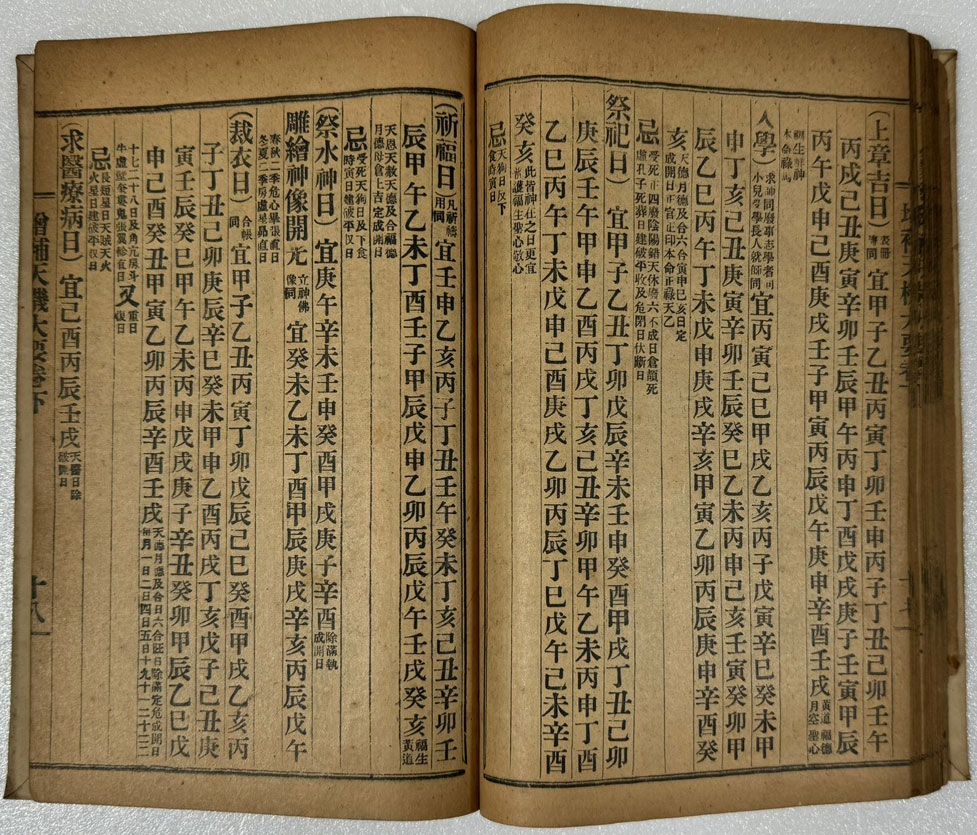 (上章吉日)表冊專同宜甲子乙丑丙寅丁卯壬申丙子丁丑己卯壬午
丙戌己丑庚寅辛卯壬辰甲午丙申丁酉戊戌庚子壬寅甲辰
丙午戊申己酉庚戌壬子甲寅丙辰戊午庚申辛酉壬戌黃道福德月空聖心
祿馬
入學)求神同宜丙寅己巳甲戌乙亥丙子戊寅辛巳癸未甲
申丁亥庚寅辛卯壬辰癸巳乙未丙申己亥壬寅癸卯甲
辰乙巳丙午丁未戊申庚戌辛亥甲寅乙卯丙辰庚申辛酉癸
亥天德月德及合六合寅申巳亥日定成開日正官正印本命正祿天乙
忌受死正四廢陰陽錯天休廢六不成日倉頡死虛孔子死葬日建破平收及危閉日伏斷日
祭祀日)宜甲子乙丑丁卯戊辰辛未壬申癸酉甲戌丁丑己卯
庚辰壬午甲申乙酉丙戌丁亥己丑辛卯甲午乙未丙申丁酉
乙巳丙午丁未戊申己酉庚戌乙卯丙辰丁巳戊午己未辛酉
癸亥此皆神在之日更宜普護福生聖心敬心
忌天狗日及下食時寅日
(祈福日)凡祈禱用同宜壬申乙亥丙子丁丑壬午癸未丁亥己丑辛卯壬
辰甲午乙未丁酉壬子甲辰戊申乙卯丙辰戊午壬戌癸亥福生黃道
天恩天赦天德及合福德月德母倉上吉定成開日
忌受死天狗日及下食時寅日建破平收日
(祭水神日)宜庚午辛未壬申癸酉甲戌庚子辛酉除滿執成開日
雕繪神像開光立神佛像同宜癸未乙未丁酉甲辰庚戌辛亥丙辰戊午
春秋二季危心畢張直日冬夏二季房虛星昴直日
(裁衣日)合帳同宜甲子乙丑丙寅丁卯戊辰己巳癸酉甲戌乙亥丙
子丁丑己卯庚辰辛巳癸未甲申乙酉丙戌丁亥戊子己丑庚
寅壬辰癸巳甲午乙未丙申戊戌庚子辛丑癸卯甲辰乙巳戊
申己酉癸丑甲寅乙卯丙辰辛酉壬戌天德月德及合日六合旺日除滿定危成開日每月一日二日四日五日十九十一二十三二
十七二十八日及角亢房斗牛虛壁奎婁鬼張翼軫直日又重日復日
忌長短星日天賊天火火星日建破平收日
(求醫療病日)宜己酉丙辰壬戌天醫日除破開日
增補天機大要卷下
十八